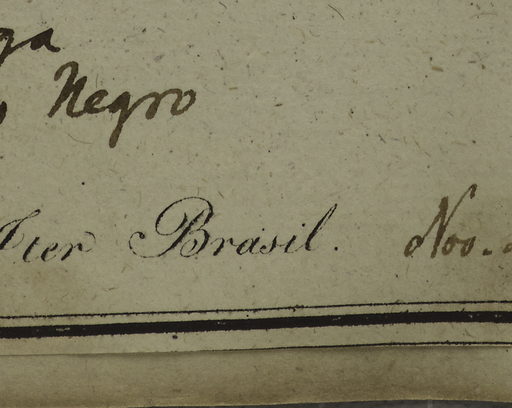 ga
Negro
Iter Brasil. Nov.